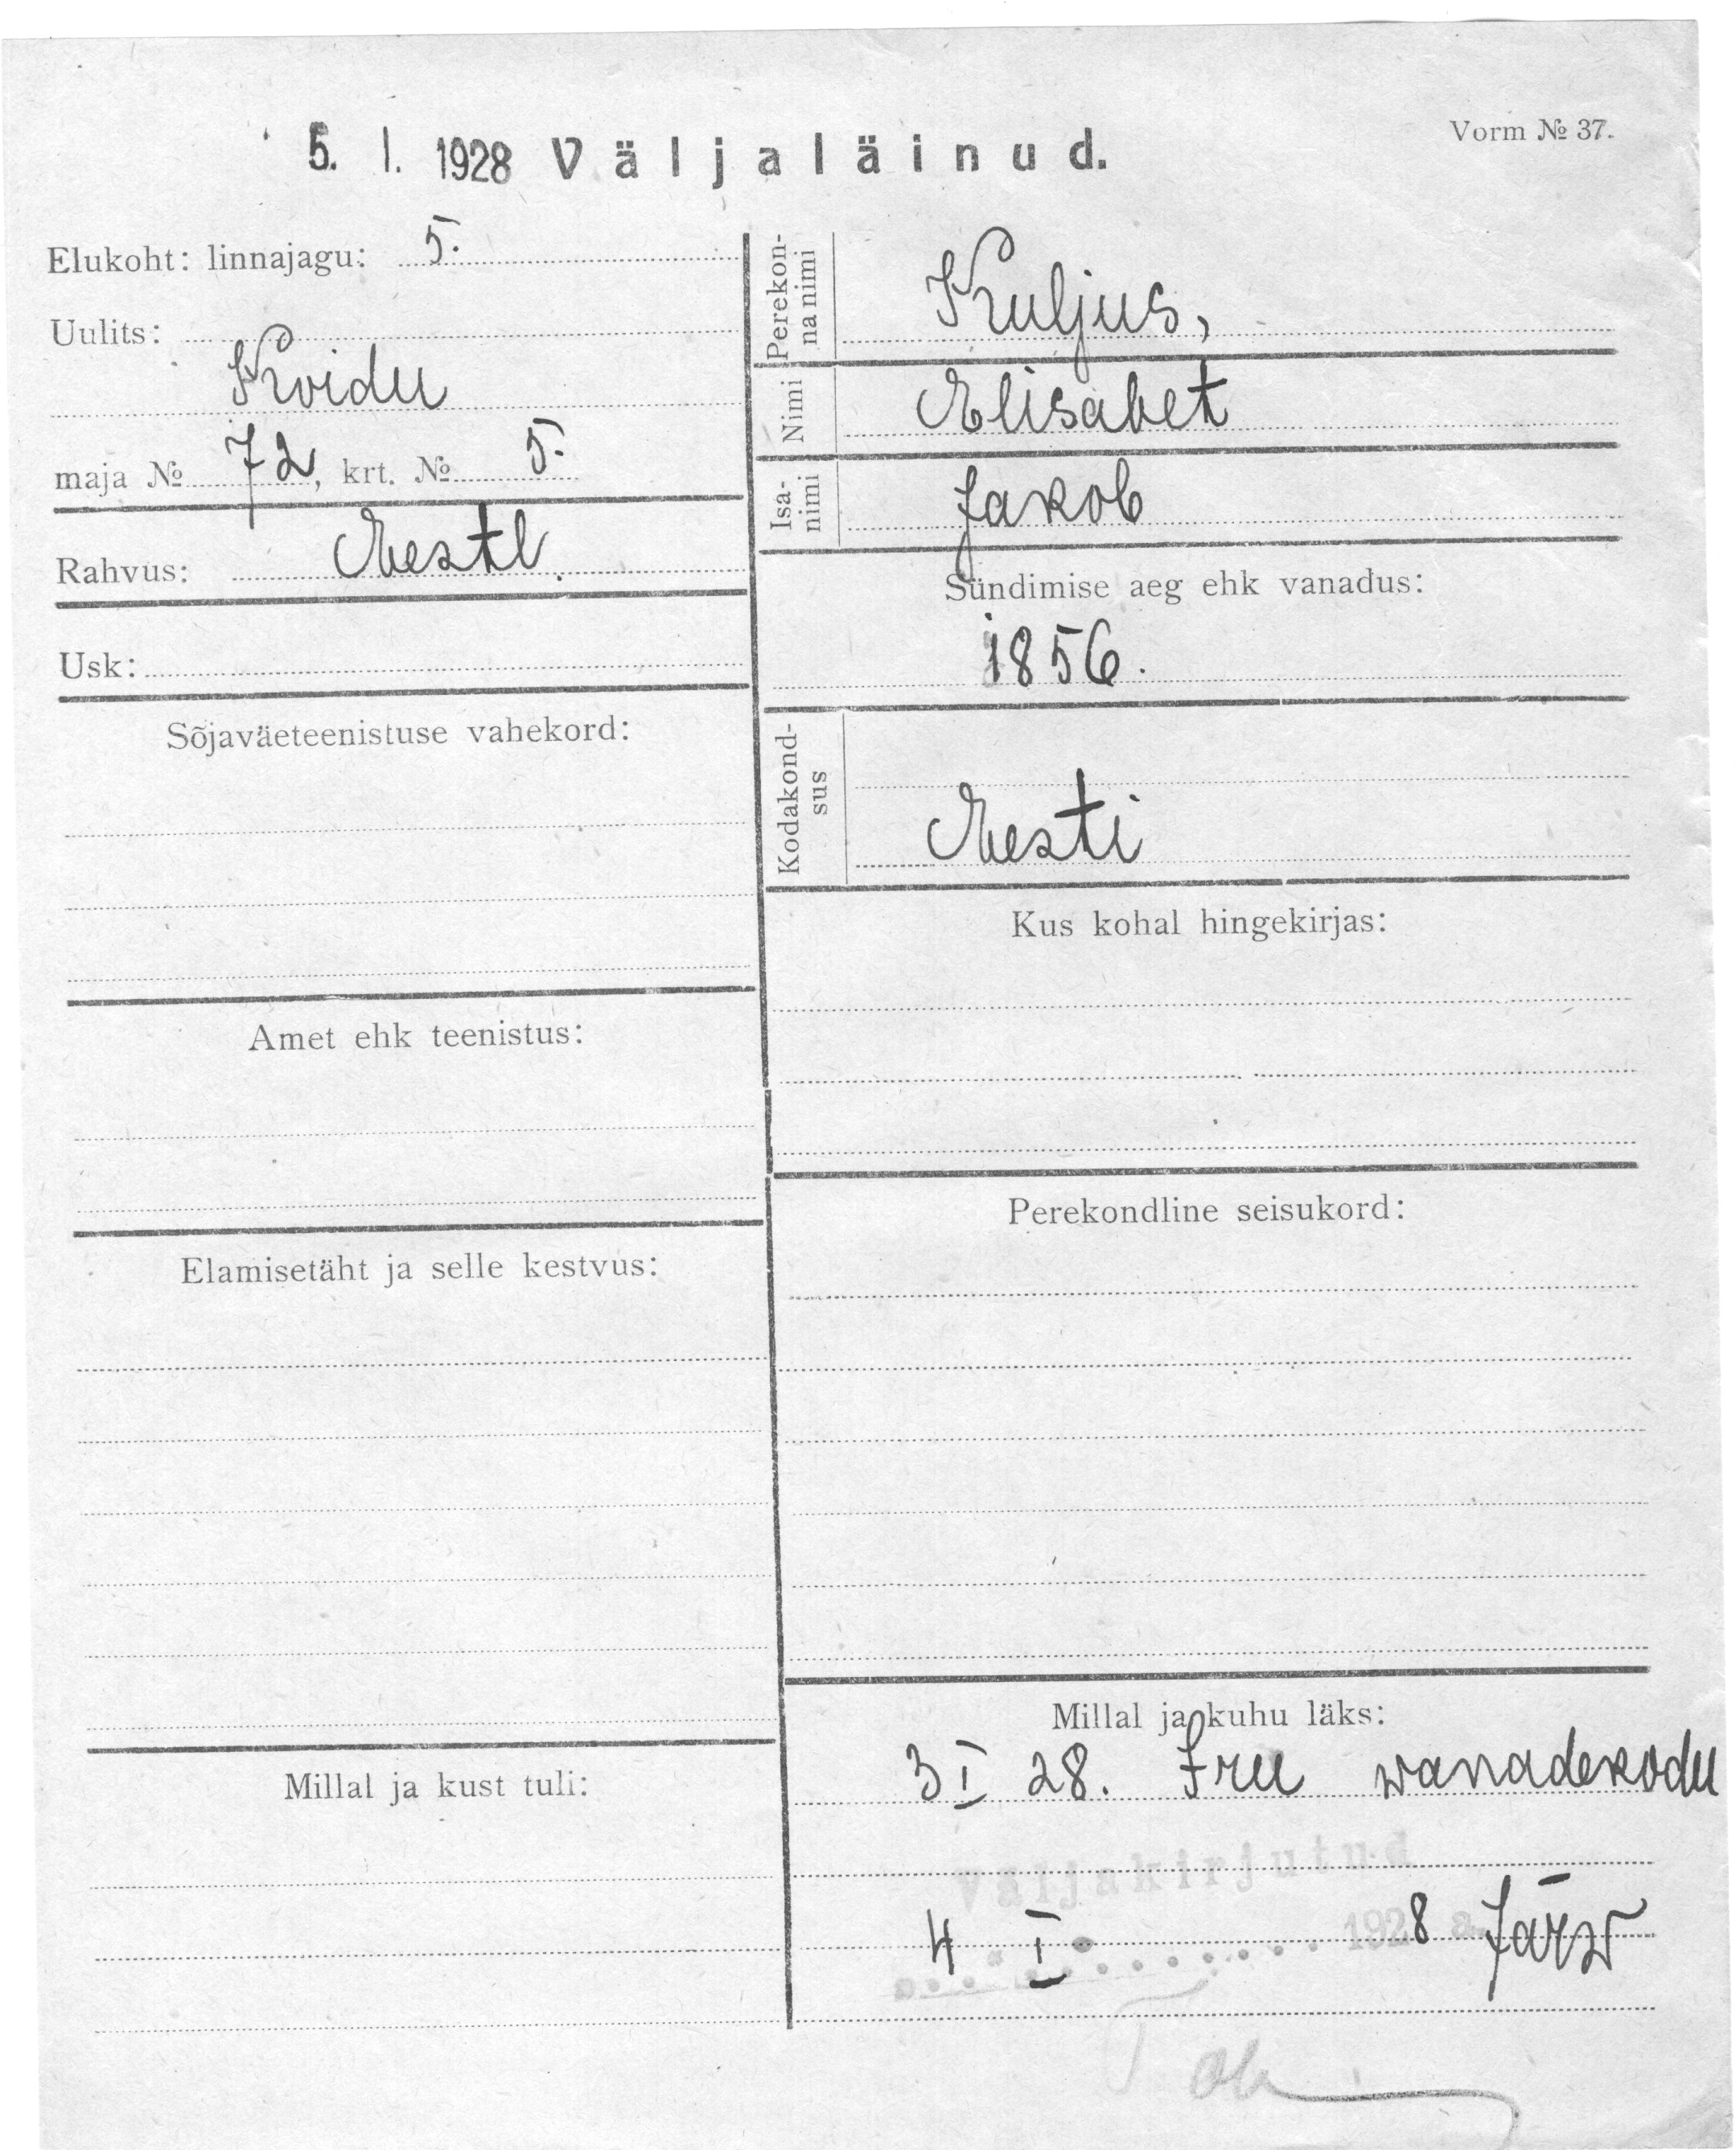 Vorm № 37.
5. I. 1928 Väljaläinud.
Elukoht: linnajagu: 5.
Uulits:
Koidu
maja № 72, krt. № 5.
Rahvus: Eestl.
Usk:
Sõjaväeteenistuse vahekord:
Amet ehk teenistus:
Elamisetäht ja selle kestvus:
Millal ja kust tuli:
Perekon-
na nimi
Kuljus,
Nimi Elisabet
Isa-
nimi
Jakob
Sündimise aeg ehk vanadus:
1856.
Kodakond-
sus
Eesti
Kus kohal hingekirjas:
Perekondline seisukord:
Millal ja kuhu läks:
3 I 28. Iru wanadekodu
Väljakirjutud
4 I 1928 a. Järw